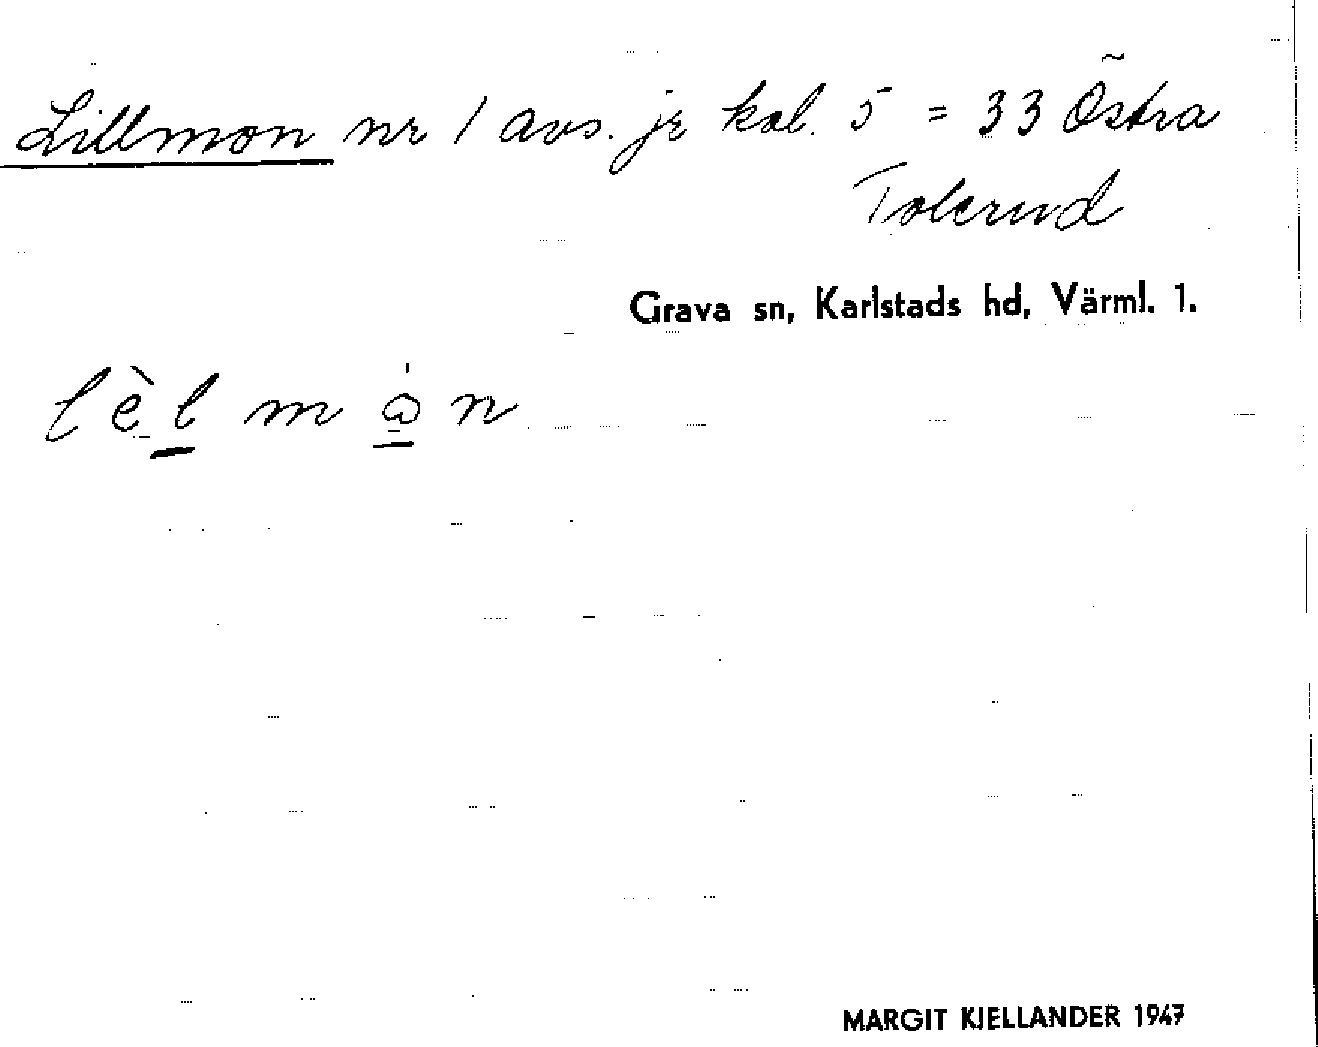 Lillmon nr 1 avs. jr kol. 5 = 33 Östra
Tolerud
Grava sn, Karlstads hd, Värml. 1.
lèl mån
MARGIT KJELLANDER 1947